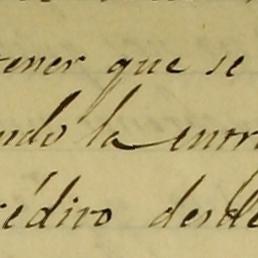 tener que se
ndo la entr
rédito desde